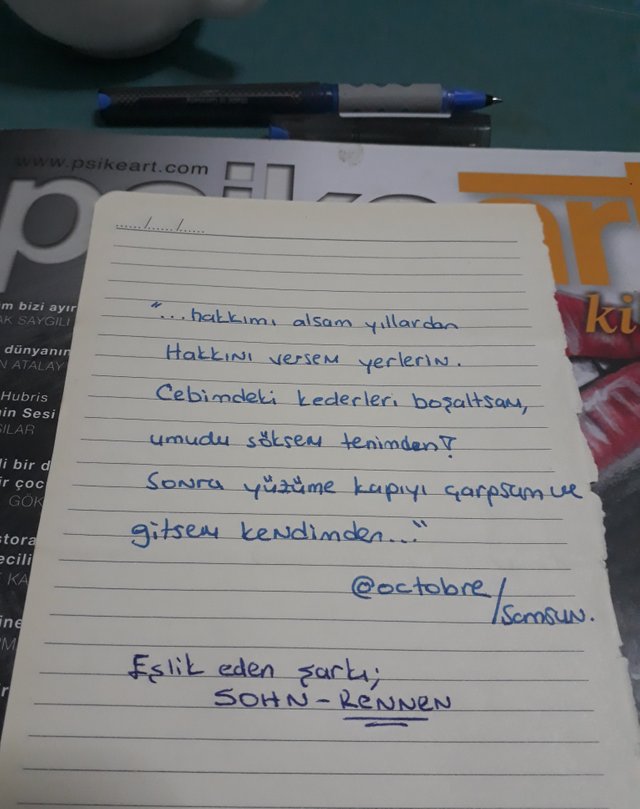 www.psikeart.com
psikeart
ki
m bizi ayır
AK SAYGILI
dünyanın
N ATALAY
Hubris
nin Sesi
SILAR
li bir d
ir çoc
GÖK
stora
ecili
K KA
ine
ir
....../....../......
"...hakkımı alsam yıllardan
Hakkını versem yerlerin.
Cebimdeki kederleri boşaltsam,
umudu söksem tenimden?
Sonra yüzüme kapıyı çarpsam ve
gitsem kendimden..."
@octobre/Samsun.
Eşlik eden şarkı;
SOHN - RENNEN